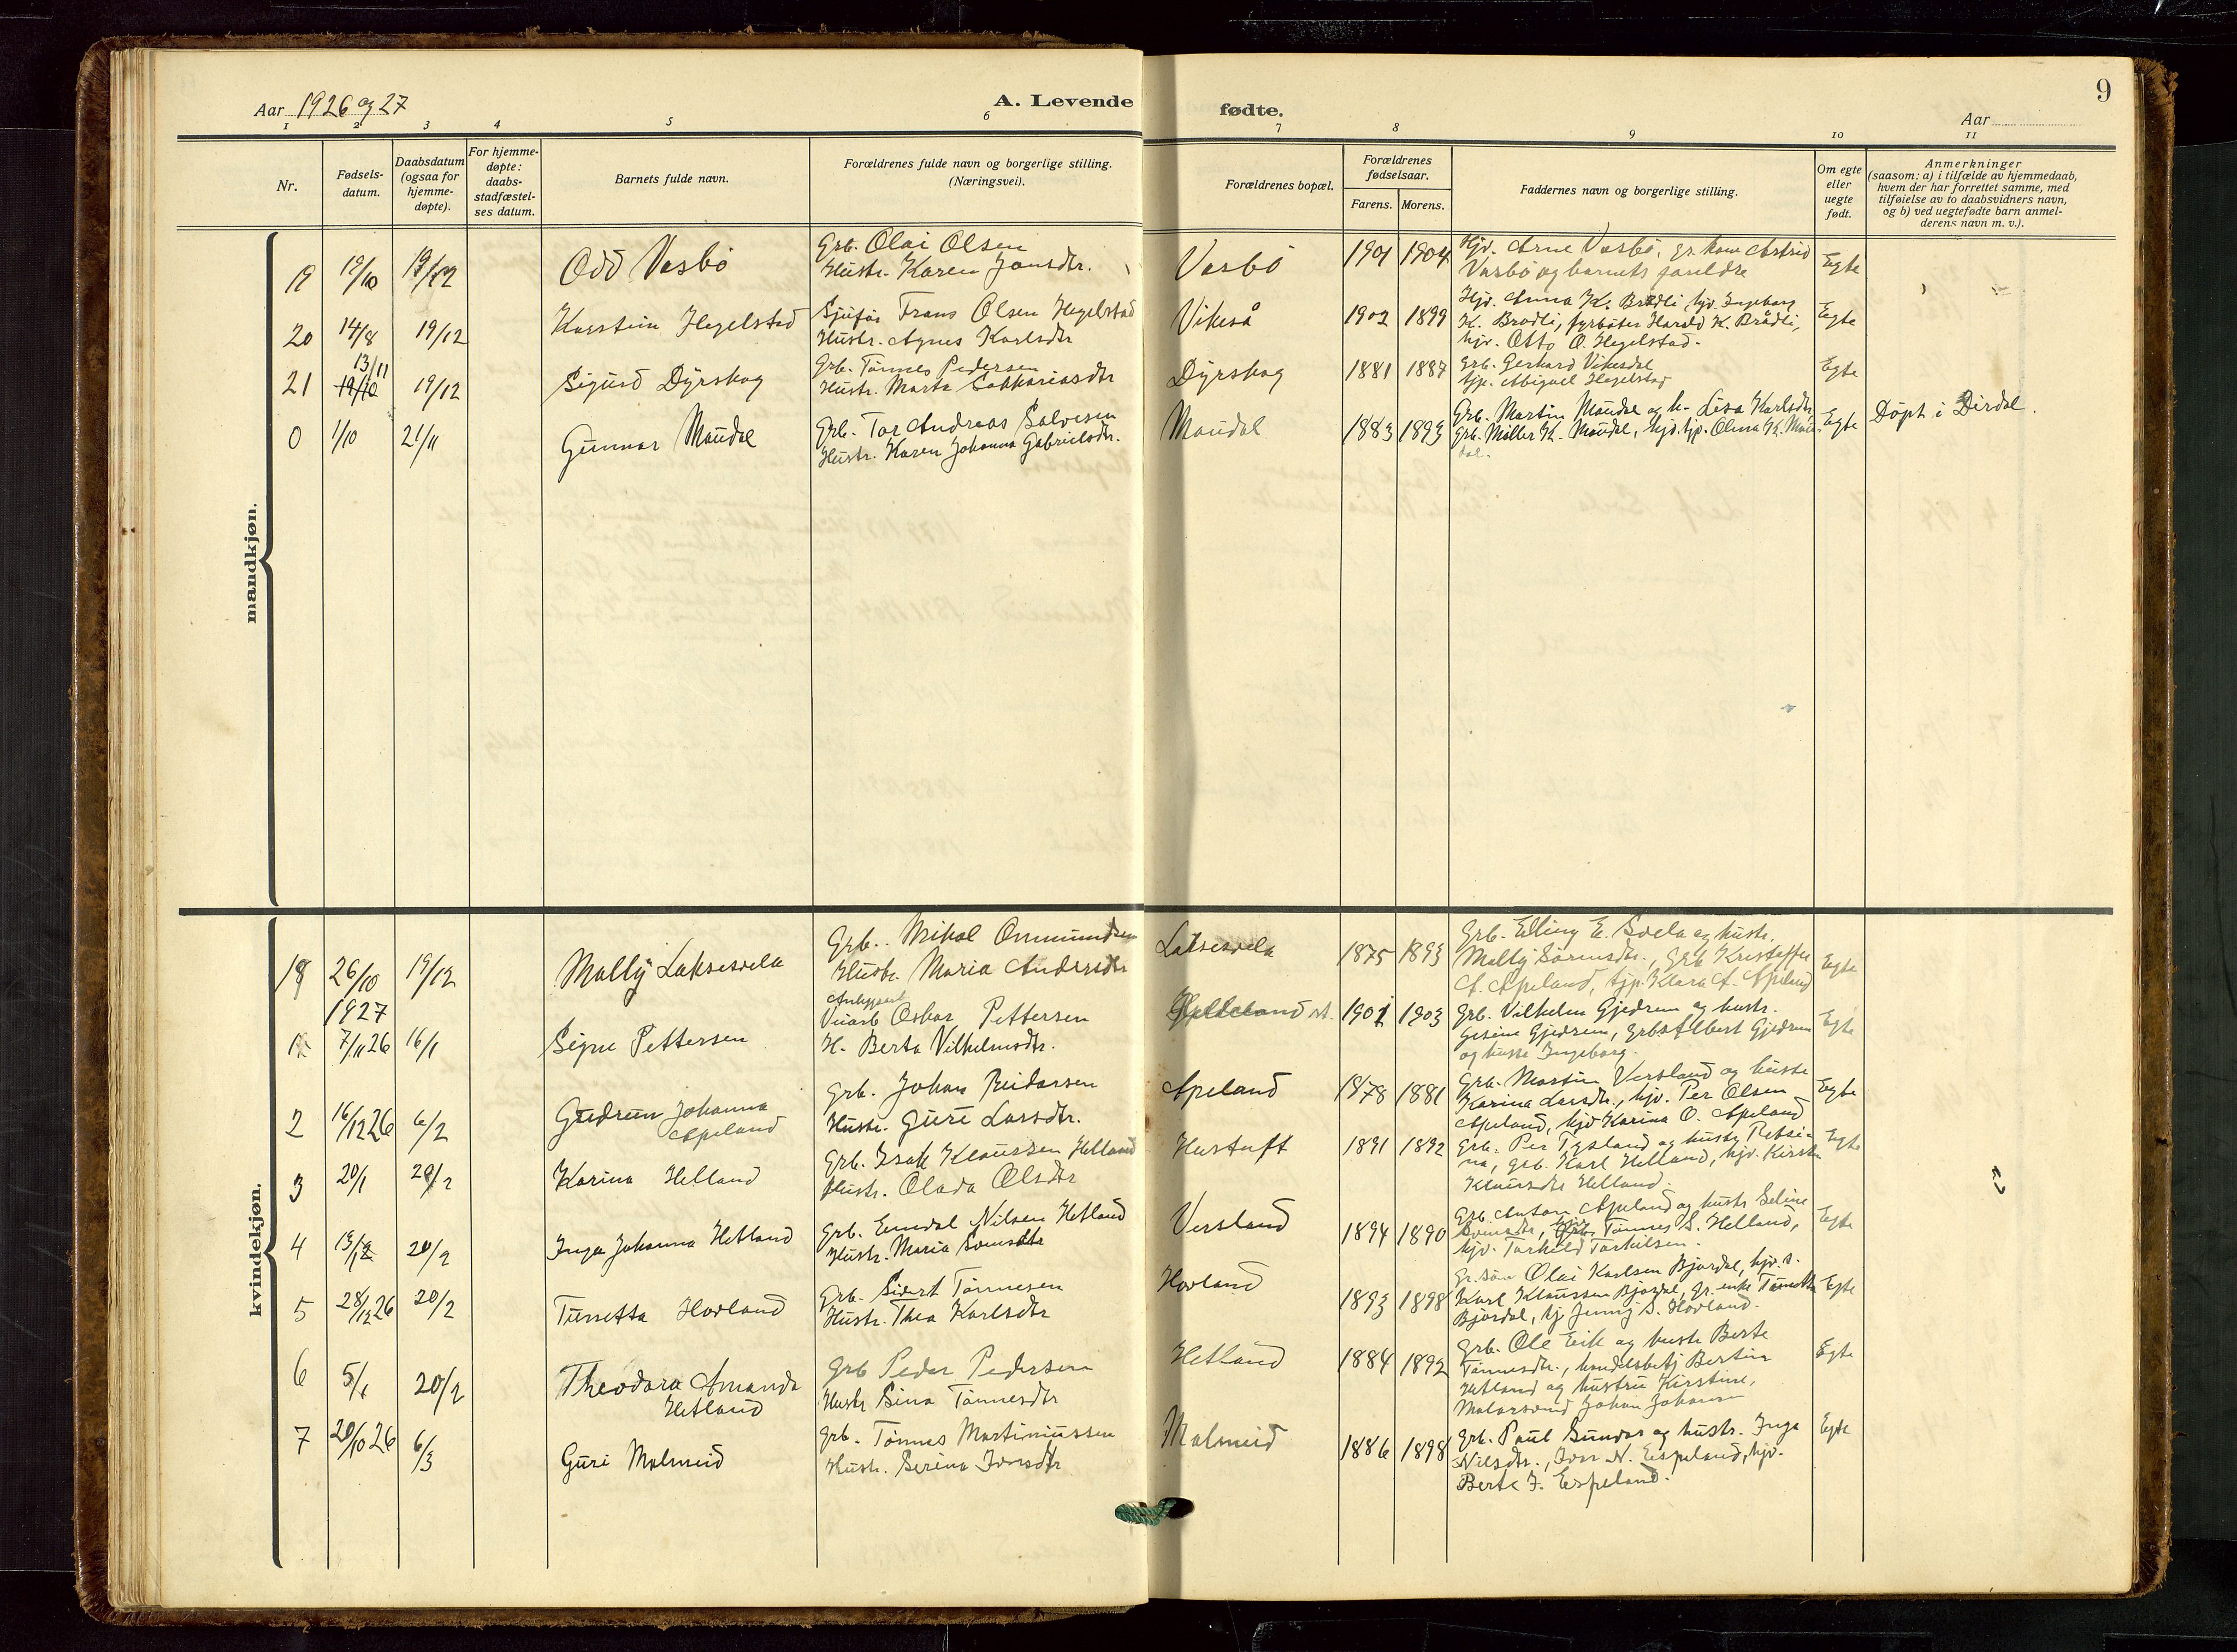 Aar 1926 og 27
A. Levende fødte.
Aar
9
1 2 3 4 5 6 7 8 9 10 11
Nr.
Fødsels-
datum.
Daabsdatum
(ogsaa for
hjemme-
døpte).
For hjemme-
døpte:
daabs-
stadfæstel-
ses datum.
Barnets fulde navn.
Forældrenes fulde navn og borgerlige stilling.
(Næringsvei).
Forældrenes bopæl.
Forældrenes
fødselsaar.
Farens. Morens.
Faddernes navn og borgerlige stilling.
Om egte
eller
uegte
født.
Anmerkninger
(saasom: a) i tilfælde av hjemmedaab,
hvem der har forrettet samme, med
tilføielse av to daabsvidners navn,
og b) ved uegtefødte barn anmel-
derens navn m. v.).
mandkjøn.
19 12/10 19/12 Odd Vasbö
Grb. Olai Olsen
Hustr. Karen Jonsdtr.
Vasbö 1901 1904
Hjv. Arne Vasbö, gr. kone Astrid
Vasbö og barnets foreldre
Egte
20 14/8 19/12 Karstein Hegelstad
Sjåför Frans Olsen Hegelstad
Hustr. Agnes Karlsdtr
Vikeså 1902 1899
Hjv. Anna K. Brådli, hjv. Ingeborg
K. Brådli, fyrböter Harald K. Brådli,
hjv. Otto O. Hegelstad.
Egte
21 13/11 19/12 Sigurd Dyrskog
Grb. Tönnes Pedersen
Hustr. Marta Sakkariasdtr
Dyrskog 1881 1887
Grb. Gerhard Vikesdal
tjp. Abigael Hegelstad
Egte
0 1/10 21/11 Gunnar Maudal
Grb. Tor Andreas Salvesen
Hustr. Karen Johanna Gabrielsdtr.
Maudal 1883 1893
Grb. Martin Maudal og h. Lisa Karlsdtr
Grb. Möller K. Maudal, hjv. tjp. Olina K. Mau-
dal.
Egte Döpt i Dirdal.
kvindekjøn.
18 26/10 19/12 Mally Laksesvela
Grb. Mikal Ommundsen
Hustr. Maria Andersdtr
Laksesvela 1875 1893
Grb. Elling E. Svela og hustr.
Mally Sörensdtr., Grb. Kristoffer
A. Apeland, tjp. Klara A. Apeland
Egte
1927
1 7/11 26 16/1 Signe Pettersen
Oskar Pettersen
H. Berta Vilhelmsdtr.
Helleland st. 1901 1903
Grb. Vilhelm Gjedrem og hustr.
Gesine Gjedrem, Grb. Albert Gjedrem
og hustr Ingeborg.
Egte
2 16/12 26 6/2 Gudrun Johanna
Apeland
Grb. Johan Reidarsen
Hustr. Guri Larsdtr.
Apeland 1878 1881
Grb. Martin Versland og hustr
Karina Larsdtr., hjv. Per Olsen
Apeland, hjv Karina O. Apeland
Egte
3 20/1 20/2 Karina Helland
Grb. Isak Klaussen Helland
Hustr. Olada Olsdtr
Hustuft 1891 1892
Grb. Per Tysland og hustr Retsi-
na, grb. Karl Helland, hjv. Kirsten
Klausdtr Helland.
Egte
4 13/12 20/2 Inga Johanna Hetland
Grb. Eendal Nilsen Hetland
Hustr. Maria Svensdtr
Versland 1894 1890
Grb Anton Apeland og hustr Seline
Svensdtr, Tönnes S. Helland,
hjv. Torkild Torkilsen.
Egte
5 28/12 26 20/2 Tunetta Hovland
Grb. Sivert Tönnesen
Hustr. Thea Karlsdtr
Hovland 1893 1898
Gr. sön Olai Karlsen Bjordal, hjv. s.
Karl Klaussen Bjordal, Gr. enke Tönetta
Bjordal, tj Jenny S. Hovland.
Egte
6 5/1 20/2 Theodora Amanda
Hetland
Grb Peder Pedersen
Hustr Sina Tönnesdtr
Hetland 1884 1892
Grb. Ole Eik og hustr Berte
Tönnesdtr., handelsbetj Bertin
Hetland og hustru Kirstine,
Malarsvend Johan Johansen
Egte
7 20/10 26 6/3 Guri Malmeid
Grb. Tönnes Martiniussen
Hustr. Serina Ivarsdtr
Malmeid 1886 1898
Grb. Paul Gundar og hustr. Inga
Nilsdtr., Ivar N. Espeland, hjv.
Berte I. Espeland.
Egte